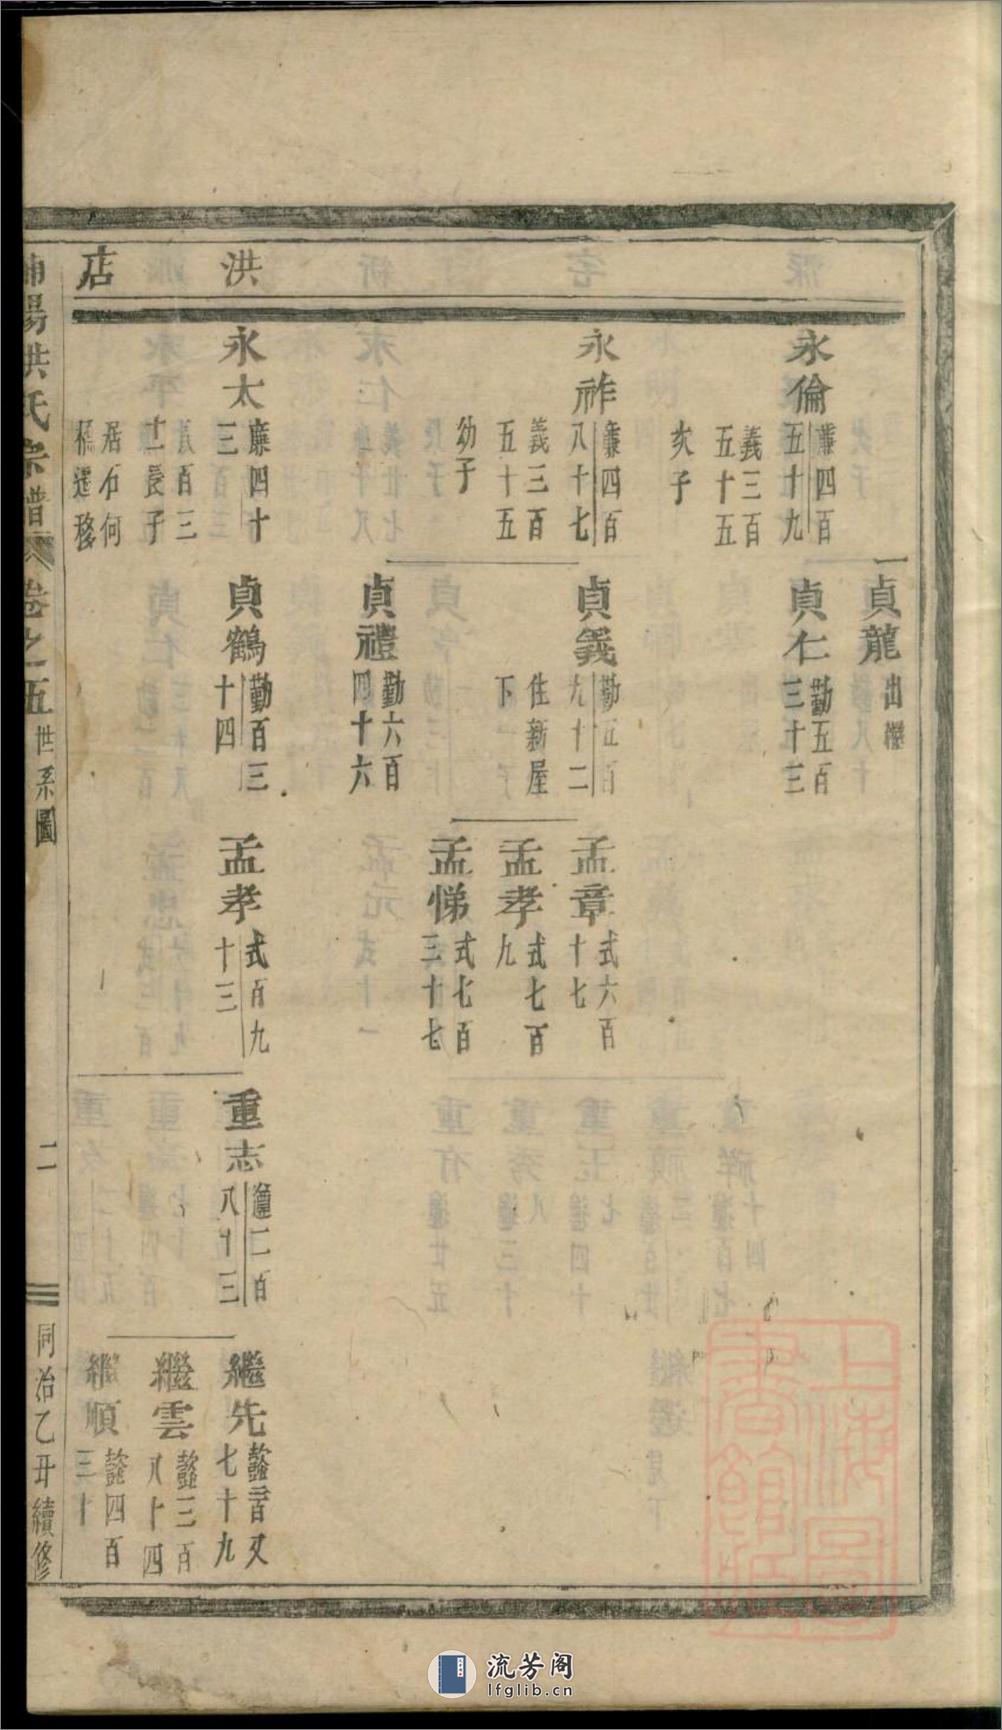 洪店
貞龍 出繼
永倫 廉四百五十九 義三百五十五 次子
貞仁 勤五百三十三
永祚 廉四百八十七 義三百五十五 幼子
貞義 勤五百九十二 住新屋下
孟章 式六百十七
孟孝 式七百九
孟悌 式七百三十七
貞禮 勤六百四十六
永太 廉四十三 義百三十一長子 居石何橋遷移
貞鶴 勤百三十四
孟孝 式百九十三
重志 蘧二百八十三
繼先 懿百又七十九
繼雲 懿三百八十四
繼順 懿四百三十
陽洪氏宗譜 卷之五 世系圖 二 同治乙丑續修
上海圖書館藏
流芳阁
lfglib.cn